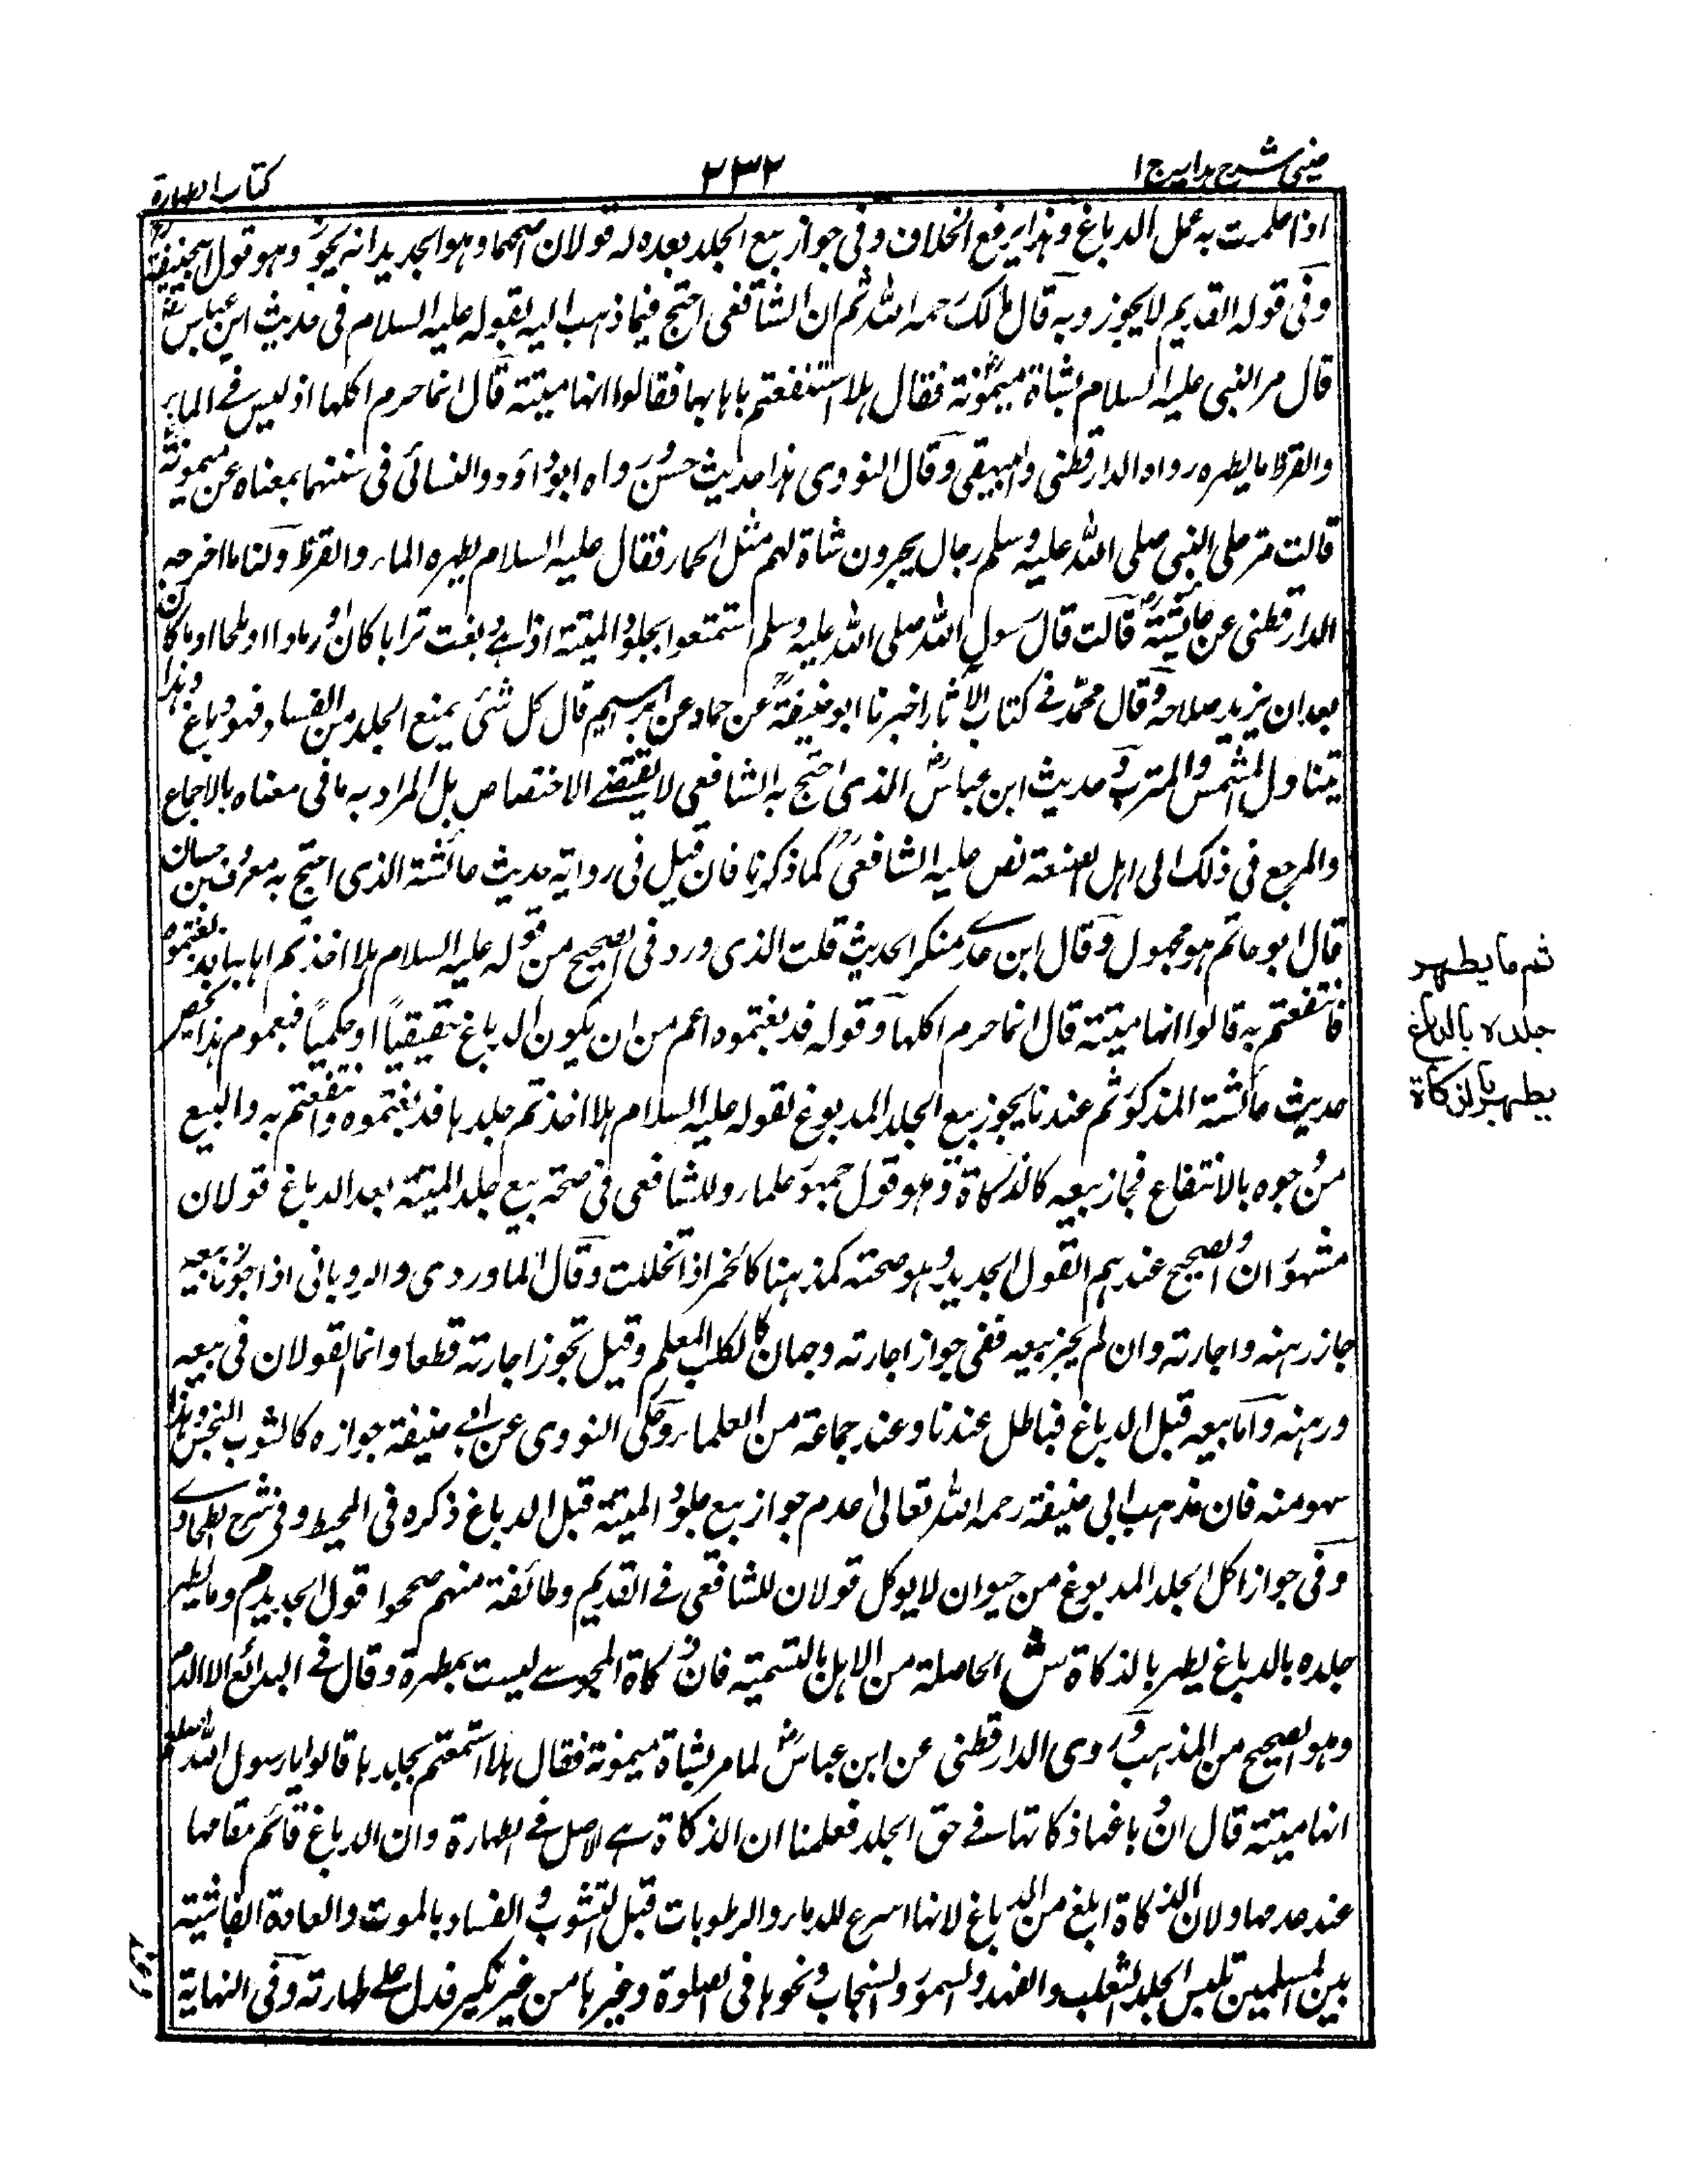 عینی شرح ہدایہ ج ا
٢٣٢
کتاب الطہارة
اذا عملت به عمل الدباغ وهذا يرفع الخلاف وفى جواز بيع الجلد بعده له قولان اصحهما وهو الجديد انه يجوز وهو قول ابى حنيفة
وفى قوله القديم لا يجوز وبه قال مالك رحمه الله ثم ان الشافعى احتج فيما ذهب اليه بقوله عليه السلام فى حديث ابن عباس
قال مر النبى عليه السلام بشاة ميمونة فقال هلا استنفعتم باهابها فقالوا انها ميتة قال انما حرم اكلها او ليس فى الماء
والقرظ ما يطهره رواه الدارقطنى والبيهقى وقال النووى هذا حديث حسن رواه ابو داؤد والنسائى فى سننهما بمعناه عن ميمونة
قالت مر على النبى صلى الله عليه وسلم رجال يجرون شاة لهم مثل الحمار فقال عليه السلام يطهره الماء والقرظ ولنا ما اخرجه
الدارقطنى عن عائشة قالت قال رسول الله صلى الله عليه وسلم استمتعوا بجلود الميتة اذا هى دبغت ترابا كان او رمادا او ملحا او ما كان
بعد ان يزيد صلاحه وقال محمد فى كتاب الآثار اخبرنا ابو حنيفة عن حماد عن ابراهيم قال كل شئ يمنع الجلد من الفساد فهو دباغ وهذا
يتناول المشمس والمترب وحديث ابن عباس الذى احتج به الشافعى لا يقتضى الاختصاص بل المراد به ما فى معناه بالاجماع
والمرجع فى ذلك الى اهل الصنعة نص عليه الشافعى كما ذكرنا فان قيل فى رواية حديث عائشة الذى احتج به معروف بن حسان
قال ابو حاتم هو مجهول وقال ابن عدى منكر الحديث قلت الذى ورد فى الصحيح من قوله عليه السلام هلا اخذتم اهابها فدبغتموه
فانتفعتم به قالوا انها ميتة قال انما حرم اكلها وقوله فدبغتموه اعم من ان يكون الدباغ حقيقيا او حكميا فبعموم هذا يخص
حديث عائشة المذكور ثم عندنا يجوز بيع الجلد المدبوغ لقوله عليه السلام هلا اخذتم جلدها فدبغتموه وانتفعتم به والبيع
من وجوه بالانتفاع فجاز بيعه كالذكاة وهو قول جمهور علماء وللشافعى فى صحة بيع جلد الميتة بعد الدباغ قولان
مشهوران والصحيح عندهم القول الجديد وهو صحته كمذهبنا كالخمر اذا تخللت وقال الماوردى والرويانى اذا جوزنا بيعه
جاز رهنه واجارته وان لم يجز بيعه ففى جواز اجارته وجهان كالكلب المعلم وقيل تجوز اجارته قطعا وانما القولان فى بيعه
ورهنه واما بيعه قبل الدباغ فباطل عندنا وعند جماعة من العلماء وحكى النووى عن ابى حنيفة جوازه كالثوب النجس وهذا
سهو منه فان مذهب ابى حنيفة رحمه الله تعالى عدم جواز بيع جلود الميتة قبل الدباغ ذكره فى المحيط وفى شرح الطحاوى
وفى جواز اكل الجلد المدبوغ من حيوان لا يوكل قولان للشافعى فى القديم وطائفة منهم صححوا قول الجديد م وما يطهر
جلده بالدباغ يطهر بالذكاة ش الحاصلة من الاهل بالتسمية فان ذكاة المجوسى ليست بمطهرة وقال فى البدائع الا الدم
وهو الصحيح من المذهب وروى الدارقطنى عن ابن عباس لما مر بشاة ميمونة فقال هلا استمتعتم بجلدها قالوا يا رسول الله صلعم
انها ميتة قال ان دباغها ذكاتها فى حق الجلد فعلمنا ان الذكاة هى الاصل فى الطهارة وان الدباغ قائم مقامها
عند عدمها ولان الذكاة ابلغ من الدباغ لانها اسرع للدماء والرطوبات قبل لتشوب الفساد بالموت والعادة الفاشية
بين المسلمين تلبس الجلد الثعلب والفهد والسمور والسنجاب ونحوها فى الصلوة وغيرها من غير نكير فدل على طهارته وفى النهاية
ثم ما يطهر
جلده بالدباغ
يطهر بالذكاة